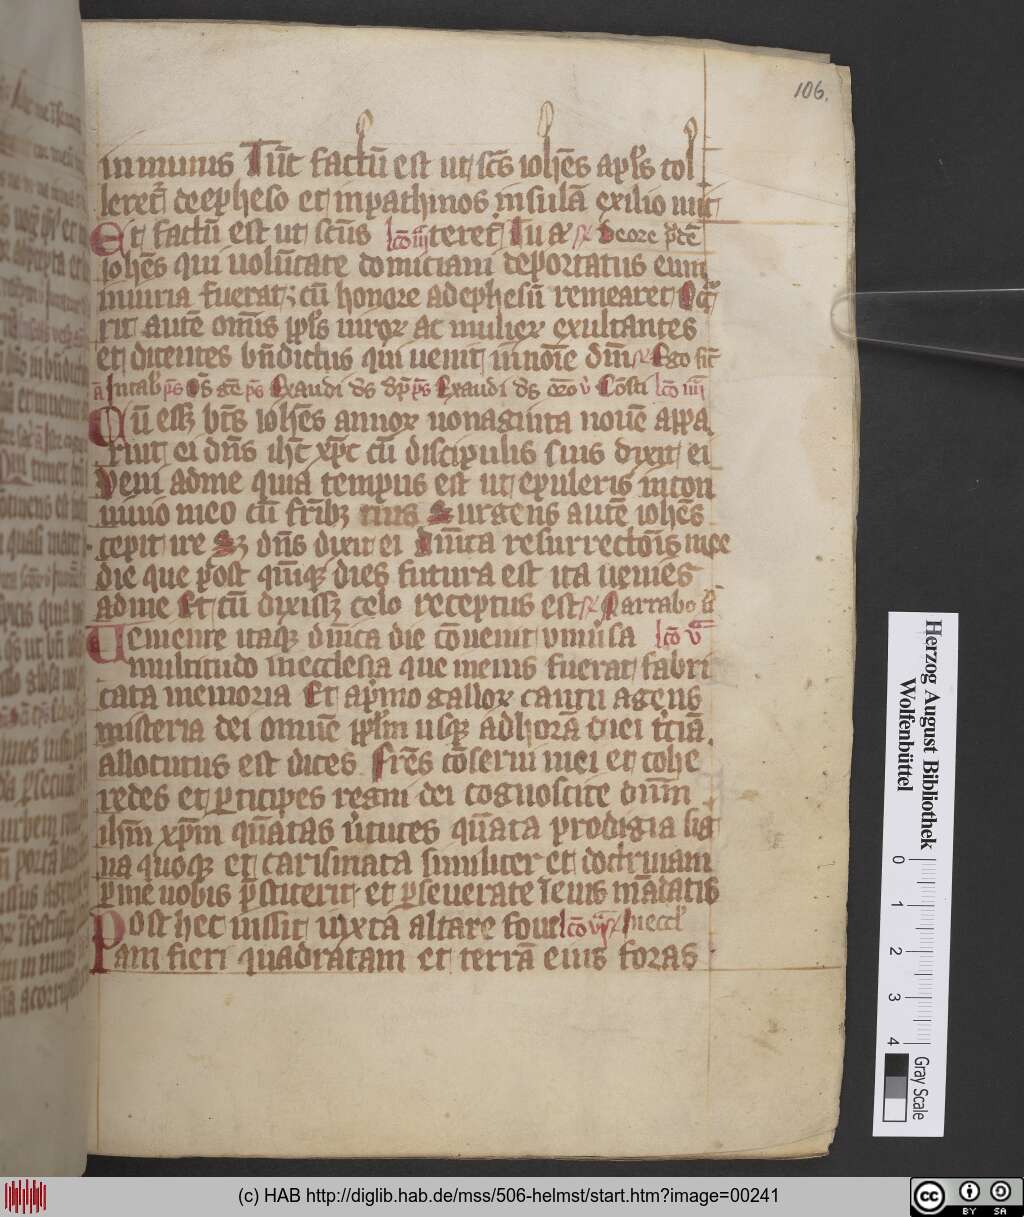 106.
inmunis Tūc factū est ut scs iohēs apls tol
leret de epheso et in pathmos insulā exilio mit
Et factū est ut scūs lcō iii teret
iohēs qui uolūtate domiciani deportatus eum
iniuria fuerat cū honore ad ephesū remearet Occ
rit autē omīs ipłs uiroꝝ ac mulieꝝ exultantes
et dicentes bndictus qui uenit in noīe dni Ego sū
Exaudi ds Exaudi ds lcō iiii
Cū essꝫ bts iohēs annoꝝ nonaginta nouē appa
ruit ei dns ihc xpc cū discipulis suis dixit ei
Veni ad me quia tempus est ut epuleris in con
uiuio meo cū fribꝫ tuis Surgens autē iohēs
cepit ire Sꝫ dns dixit ei Dnica resurrectōis mee
die que post quīqꝫ dies futura est ita uenies
ad me Et cū dixissꝫ celo receptus est
Veniente itaqꝫ dnica die cōuenit vniūsa lcō v
multitudo in ecclesia que in eius fuerat fabri
cata memoria Et a pmo galloꝝ cantu agens
misteria dei omnē pplm usqꝫ ad horā diei tciā
allocutus est dices Frēs cōserui mei et cohe
redes et pticipes regni dei cognoscite dnm
ihm xpm quātas ututes quāta prodigia sig
na quoqꝫ et carismata similiter et doctrinam
p me uobis pstiterit et pseuerate ī eius mādatis
Post hec iussit iuxta altare foue lcō vi
am fieri quadratam et terrā eius foras
Herzog August Bibliothek
Wolfenbüttel
0 1 2 3 4
Gray Scale
(c) HAB http://diglib.hab.de/mss/506-helmst/start.htm?image=00241
cc BY SA